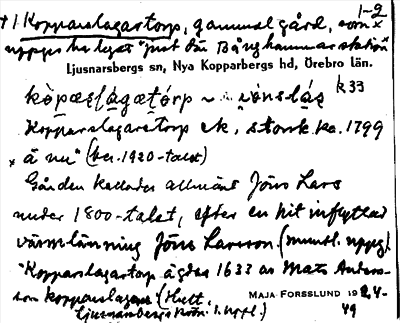 † 1 Kopparslagartorp, gammal gård, som 1-2
uppges ha legat "just där Bånghammar station
Ljusnarsbergs sn, Nya Kopparbergs hd, Örebro län.
k 33
Kopparslagaretorp ek, storsk.ka. 1799
x är nu" (ber. 1920-talet)
Gården kallades allmänt Jöns Lars
under 1800-talet, efter en hit inflyttad
värmlänning Jöns Larsson. (muntl. uppg.)
"Kopparslagartorp ägdes 1633 av Mats Anders-
son kopparslagare" (Hult,
MAJA FORSSLUND 1924-
Ljusnarsbergs krön. 1. uppl.)
49